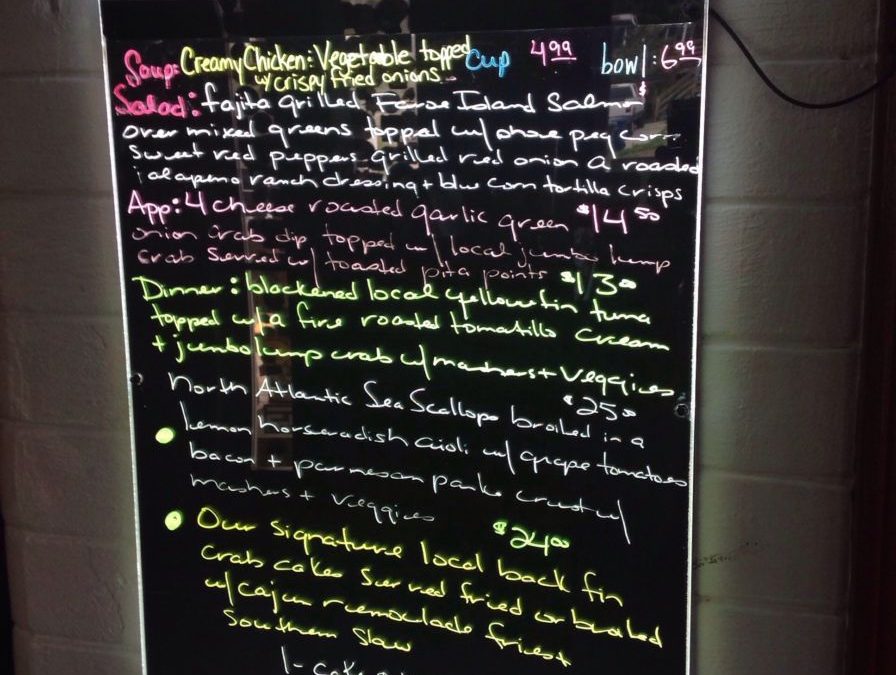 Soup: Creamy Chicken: Vegetable topped Cup 4.99 bowl: 6.99
w/ crispy fried onions
Salad: fajita grilled Faroe Island Salmon $
over mixed greens topped w/ corn
sweet red peppers grilled red onion a roasted
jalapeno ranch dressing + blue corn tortilla crisps
App: 4 cheese roasted garlic green $14.50
onion crab dip topped w/ local jumbo lump
crab served w/ toasted pita points $13.00
Dinner: blackened local yellowfin tuna
topped w/ a fire roasted tomatillo cream
+ jumbo lump crab w/ mashers + Veggies
$25.00
North Atlantic Sea Scallops broiled in a
lemon horseradish aioli w/ grape tomatoes
bacon + parmesan panko crust w/
mashers + veggies
$24.00
Our signature local back fin
crab cakes served fried or broiled
w/ cajun remoulade fries +
Southern Slaw
1- cake